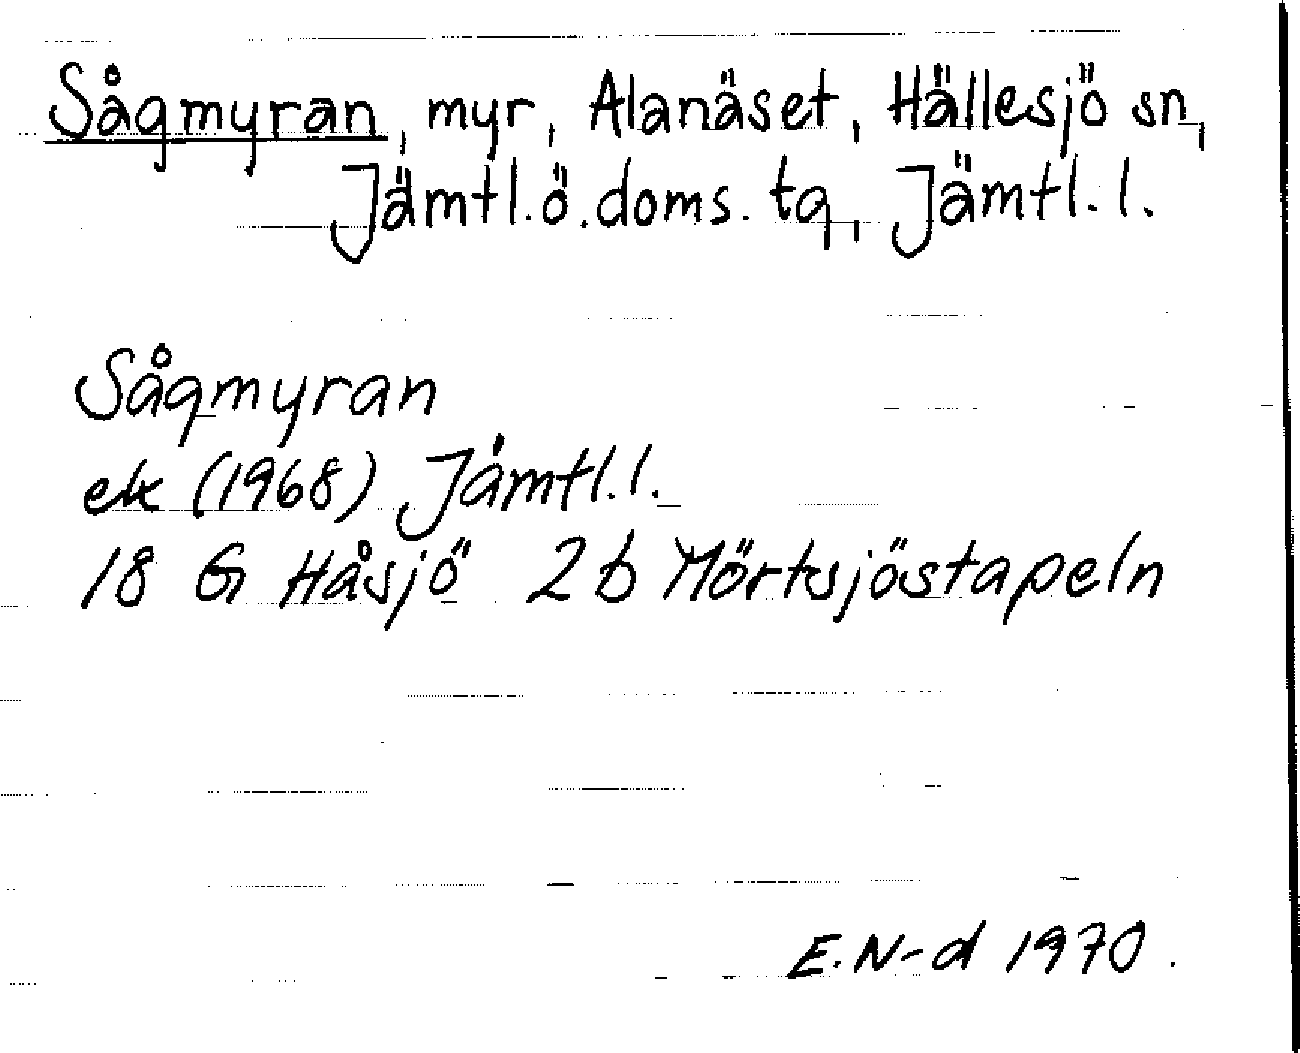 Sågmyran, myr, Alanäset, Hällesjö sn,
Jämtl.ö.doms.tg, Jämtl.l.
Sågmyran
ek (1968) Jämtl.l.
18 G Håsjö 2b Mörtsjöstapeln
E.N-d 1970.